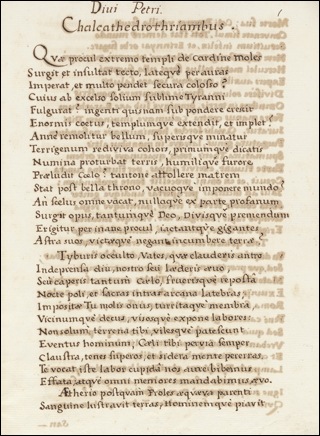 Diui Petri.
Chalcathedrothriambus.
Quæ procul extremo templi de cardine moles
Surgit et insultat tecto, lateq́ue per auras
Imperat, et multo pendet secura colosso?
Cuius ab excelso solium sublime Tyranni
Fulgurat? ingenti quisnam sub pondere crescit
Enormis coetus, templumque extendit, et implet?
Anne remolitur bellum, superisque minatur
Terrigenum rediviva cohors, primumque dicatis
Numina proturbat terris, humilique furore
Præludit Cælo? tantone attollere matrem
Stat post bella throno, vacuoque imponere mundo?
An scelus omne vacat, nullaque ex parte profanum
Surgit opus, tantumque Deo, Divisque premendum
Erigitur per inane procul, iactantque gigantes
Astra suos, victæque negant incumbere terræ?
Tyburis occulto, Vates, quæ clauderis antro
Indeprensa diu, nostro seu læderis ævo,
Seu capsis tantum Carlo, seruorisque repostâ
Nocte poli, et sacras intus arcana latebras;
Impositæ Tu molis onus, territaque membra,
Vicinumque decus, visosque expone labores:
Non solum terrena tibi, vilesque patescunt
Eventus hominum; Cæli tibi pervia semper
Claustra, tenes superos, et sidera mente pererras.
Te vocat iste labor cupidâ nos aure bibemus
Effata, atque omni memores mandabimus ævo.
Ætherio postquam Proles æquæva parenti
Sanguine lustravit terras, hominemque piavit
San-